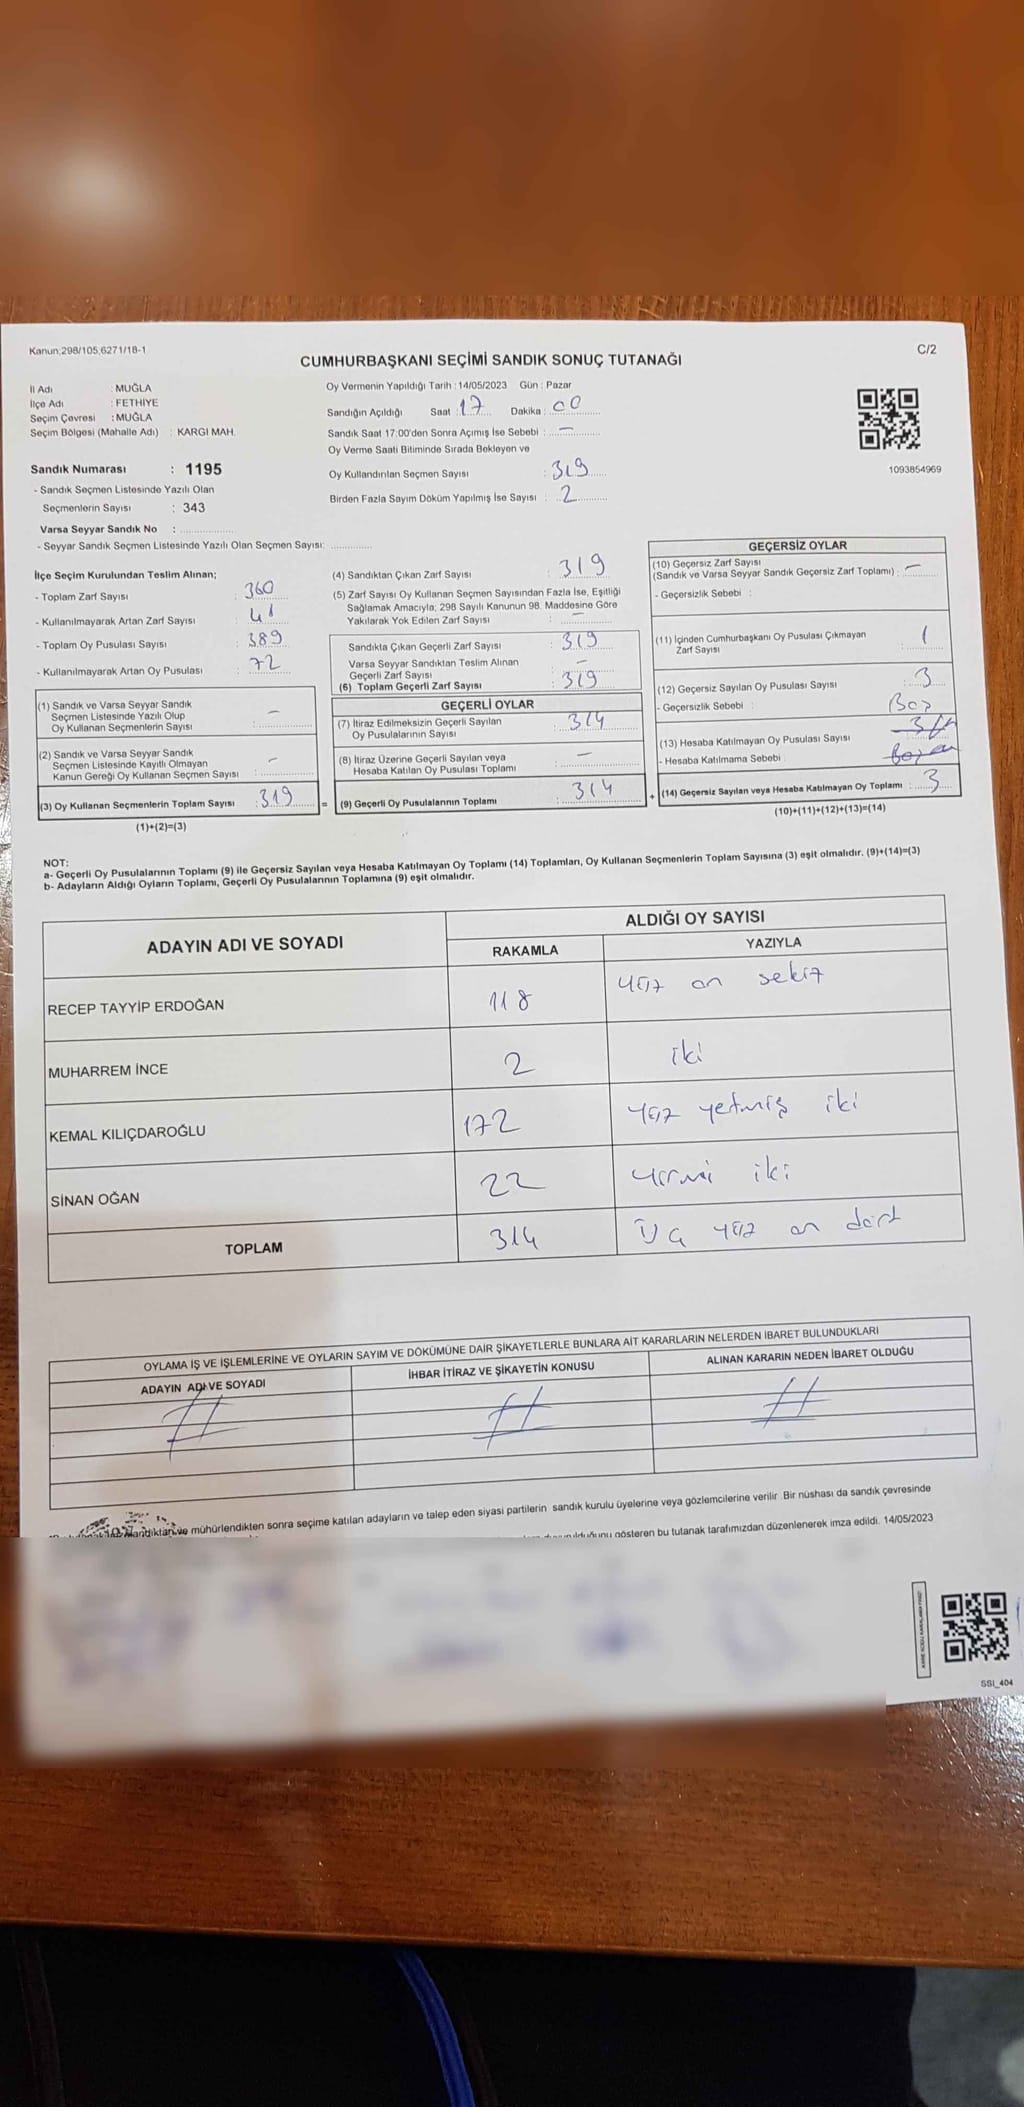 Kanun;298/105,6271/18-1
C/2
CUMHURBAŞKANI SEÇİMİ SANDIK SONUÇ TUTANAĞI
İl Adı : MUĞLA
İlçe Adı : FETHİYE
Seçim Çevresi : MUĞLA
Seçim Bölgesi (Mahalle Adı) : KARGI MAH.
Sandık Numarası : 1195
- Sandık Seçmen Listesinde Yazılı Olan
Seçmenlerin Sayısı : 343
Varsa Seyyar Sandık No :
- Seyyar Sandık Seçmen Listesinde Yazılı Olan Seçmen Sayısı:
Oy Vermenin Yapıldığı Tarih : 14/05/2023 Gün : Pazar
Sandığın Açıldığı Saat : 17 Dakika : 00
Sandık Saat 17:00'den Sonra Açımış İse Sebebi : -
Oy Verme Saati Bitiminde Sırada Bekleyen ve
Oy Kullandırılan Seçmen Sayısı : 319
Birden Fazla Sayım Döküm Yapılmış İse Sayısı : 2
1093854969
İlçe Seçim Kurulundan Teslim Alınan;
- Toplam Zarf Sayısı : 360
- Kullanılmayarak Artan Zarf Sayısı : 41
- Toplam Oy Pusulası Sayısı : 389
- Kullanılmayarak Artan Oy Pusulası : 72
(1) Sandık ve Varsa Seyyar Sandık
Seçmen Listesinde Yazılı Olup
Oy Kullanan Seçmenlerin Sayısı : -
(2) Sandık ve Varsa Seyyar Sandık
Seçmen Listesinde Kayıtlı Olmayan
Kanun Gereği Oy Kullanan Seçmen Sayısı : -
(3) Oy Kullanan Seçmenlerin Toplam Sayısı : 319
(1)+(2)=(3)
(4) Sandıktan Çıkan Zarf Sayısı : 319
(5) Zarf Sayısı Oy Kullanan Seçmen Sayısından Fazla İse, Eşitliği
Sağlamak Amacıyla; 298 Sayılı Kanunun 98. Maddesine Göre
Yakılarak Yok Edilen Zarf Sayısı : -
Sandıkta Çıkan Geçerli Zarf Sayısı : 319
Varsa Seyyar Sandıktan Teslim Alınan
Geçerli Zarf Sayısı : -
(6) Toplam Geçerli Zarf Sayısı : 319
GEÇERLİ OYLAR
(7) İtiraz Edilmeksizin Geçerli Sayılan
Oy Pusulalarının Sayısı : 314
(8) İtiraz Üzerine Geçerli Sayılan veya
Hesaba Katılan Oy Pusulası Toplamı : -
= (9) Geçerli Oy Pusulalarının Toplamı : 314
GEÇERSİZ OYLAR
(10) Geçersiz Zarf Sayısı
(Sandık ve Varsa Seyyar Sandık Geçersiz Zarf Toplamı) : -
- Geçersizlik Sebebi :
(11) İçinden Cumhurbaşkanı Oy Pusulası Çıkmayan
Zarf Sayısı : 1
(12) Geçersiz Sayılan Oy Pusulası Sayısı : 3
- Geçersizlik Sebebi :
(13) Hesaba Katılmayan Oy Pusulası Sayısı
- Hesaba Katılmama Sebebi :
+ (14) Geçersiz Sayılan veya Hesaba Katılmayan Oy Toplamı : 3
(10)+(11)+(12)+(13)=(14)
NOT:
a- Geçerli Oy Pusulalarının Toplamı (9) ile Geçersiz Sayılan veya Hesaba Katılmayan Oy Toplamı (14) Toplamları, Oy Kullanan Seçmenlerin Toplam Sayısına (3) eşit olmalıdır. (9)+(14)=(3)
b- Adayların Aldığı Oyların Toplamı, Geçerli Oy Pusulalarının Toplamına (9) eşit olmalıdır.
ADAYIN ADI VE SOYADI
ALDIĞI OY SAYISI
RAKAMLA YAZIYLA
RECEP TAYYİP ERDOĞAN 118 yüz on sekiz
MUHARREM İNCE 2 iki
KEMAL KILIÇDAROĞLU 172 yüz yetmiş iki
SİNAN OĞAN 22 yirmi iki
TOPLAM 314 Üç yüz on dört
OYLAMA İŞ VE İŞLEMLERİNE VE OYLARIN SAYIM VE DÖKÜMÜNE DAİR ŞİKAYETLERLE BUNLARA AİT KARARLARIN NELERDEN İBARET BULUNDUKLARI
ADAYIN ADI VE SOYADI İHBAR İTİRAZ VE ŞİKAYETİN KONUSU ALINAN KARARIN NEDEN İBARET OLDUĞU
mühürlendikten sonra seçime katılan adayların ve talep eden siyasi partilerin sandık kurulu üyelerine veya gözlemcilerine verilir. Bir nüshası da sandık çevresinde
gösteren bu tutanak tarafımızdan düzenlenerek imza edildi. 14/05/2023
SSI_404